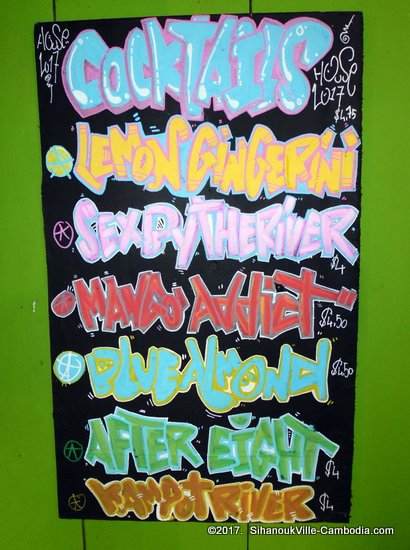 COCKTAILS
2017
2017
$4.75
LEMON GINGERINI
SEX BY THE RIVER
$4
MANGO ADDiCT
$4.50
BLUE ALMOND
$4.50
AFTER EiGHT
$4
KAMPOT RiVER
$4
©2017. SihanoukVille-Cambodia.com